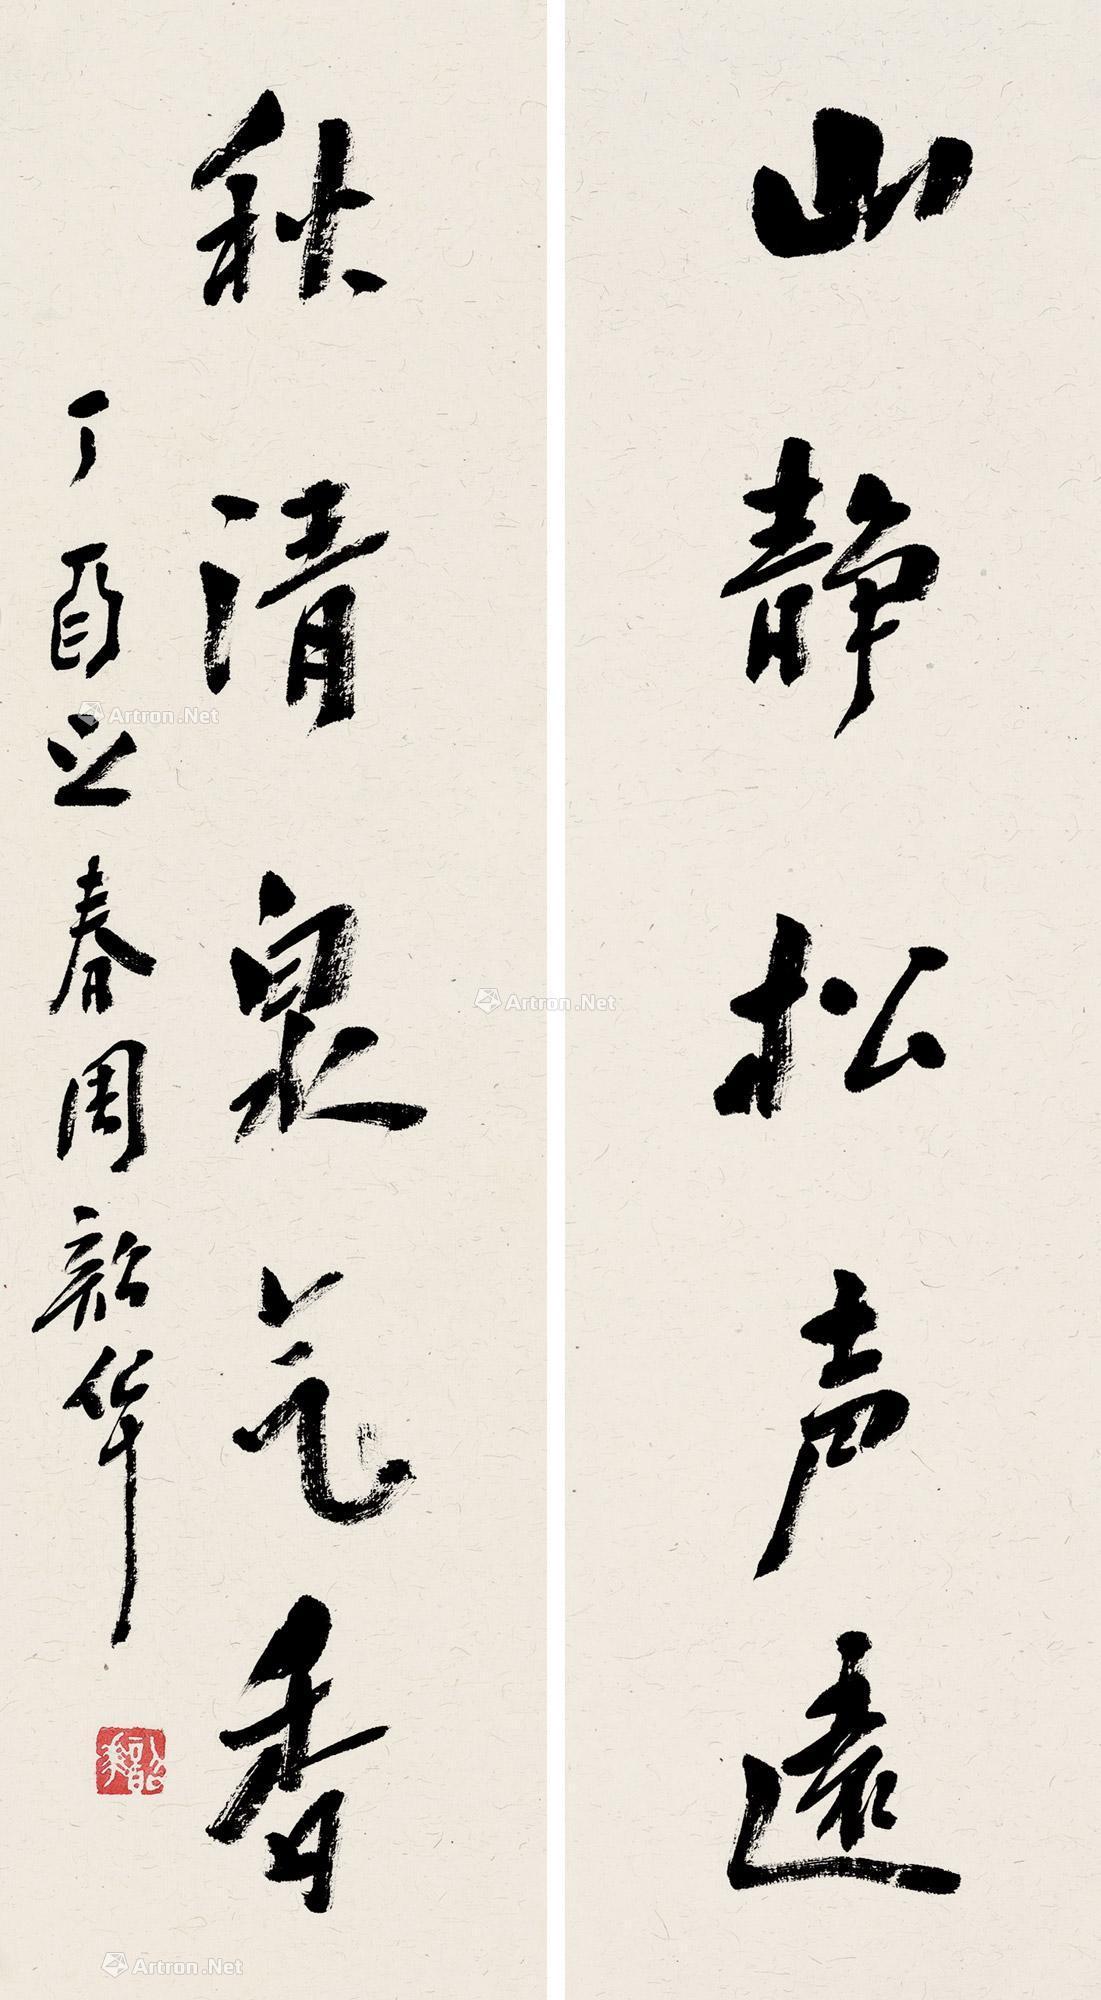 山静松声遠
秋清泉气香
丁酉之春周韶华
韶华
Artron.Net
Artron.Net
Artron.Net